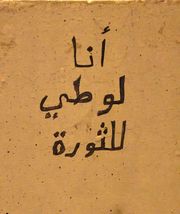 أنا
لوطي
للثورة